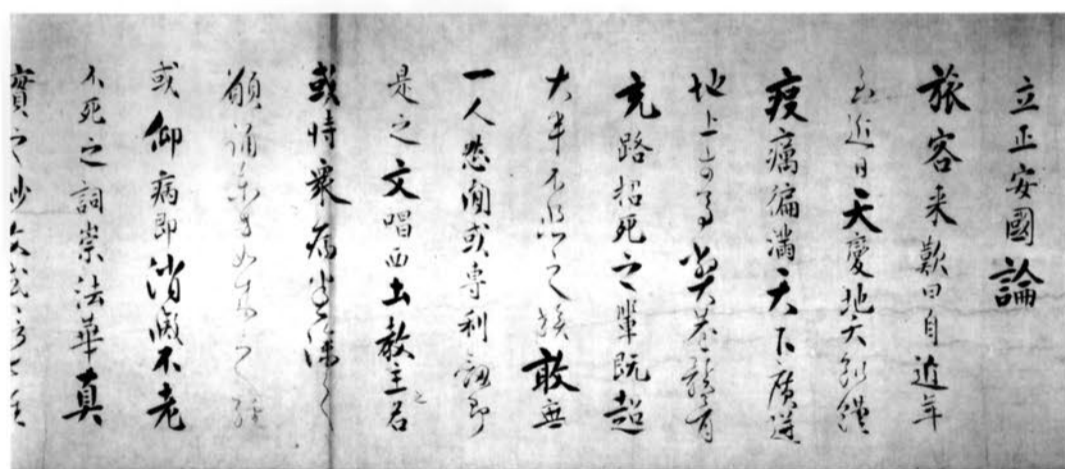 立正安國論
旅客来歎曰自近年
至近日天變地夭飢饉
疫癘徧滿天下廣迸
地上牛馬斃巷骸骨
充路招死之輩既超
大半不悲之族敢無
一人然間或專利劔即
是之文唱西土教主名
或恃衆病悉除之
願誦東方如來之經
或仰病即消滅不老
不死之詞崇法華真
實之妙文或